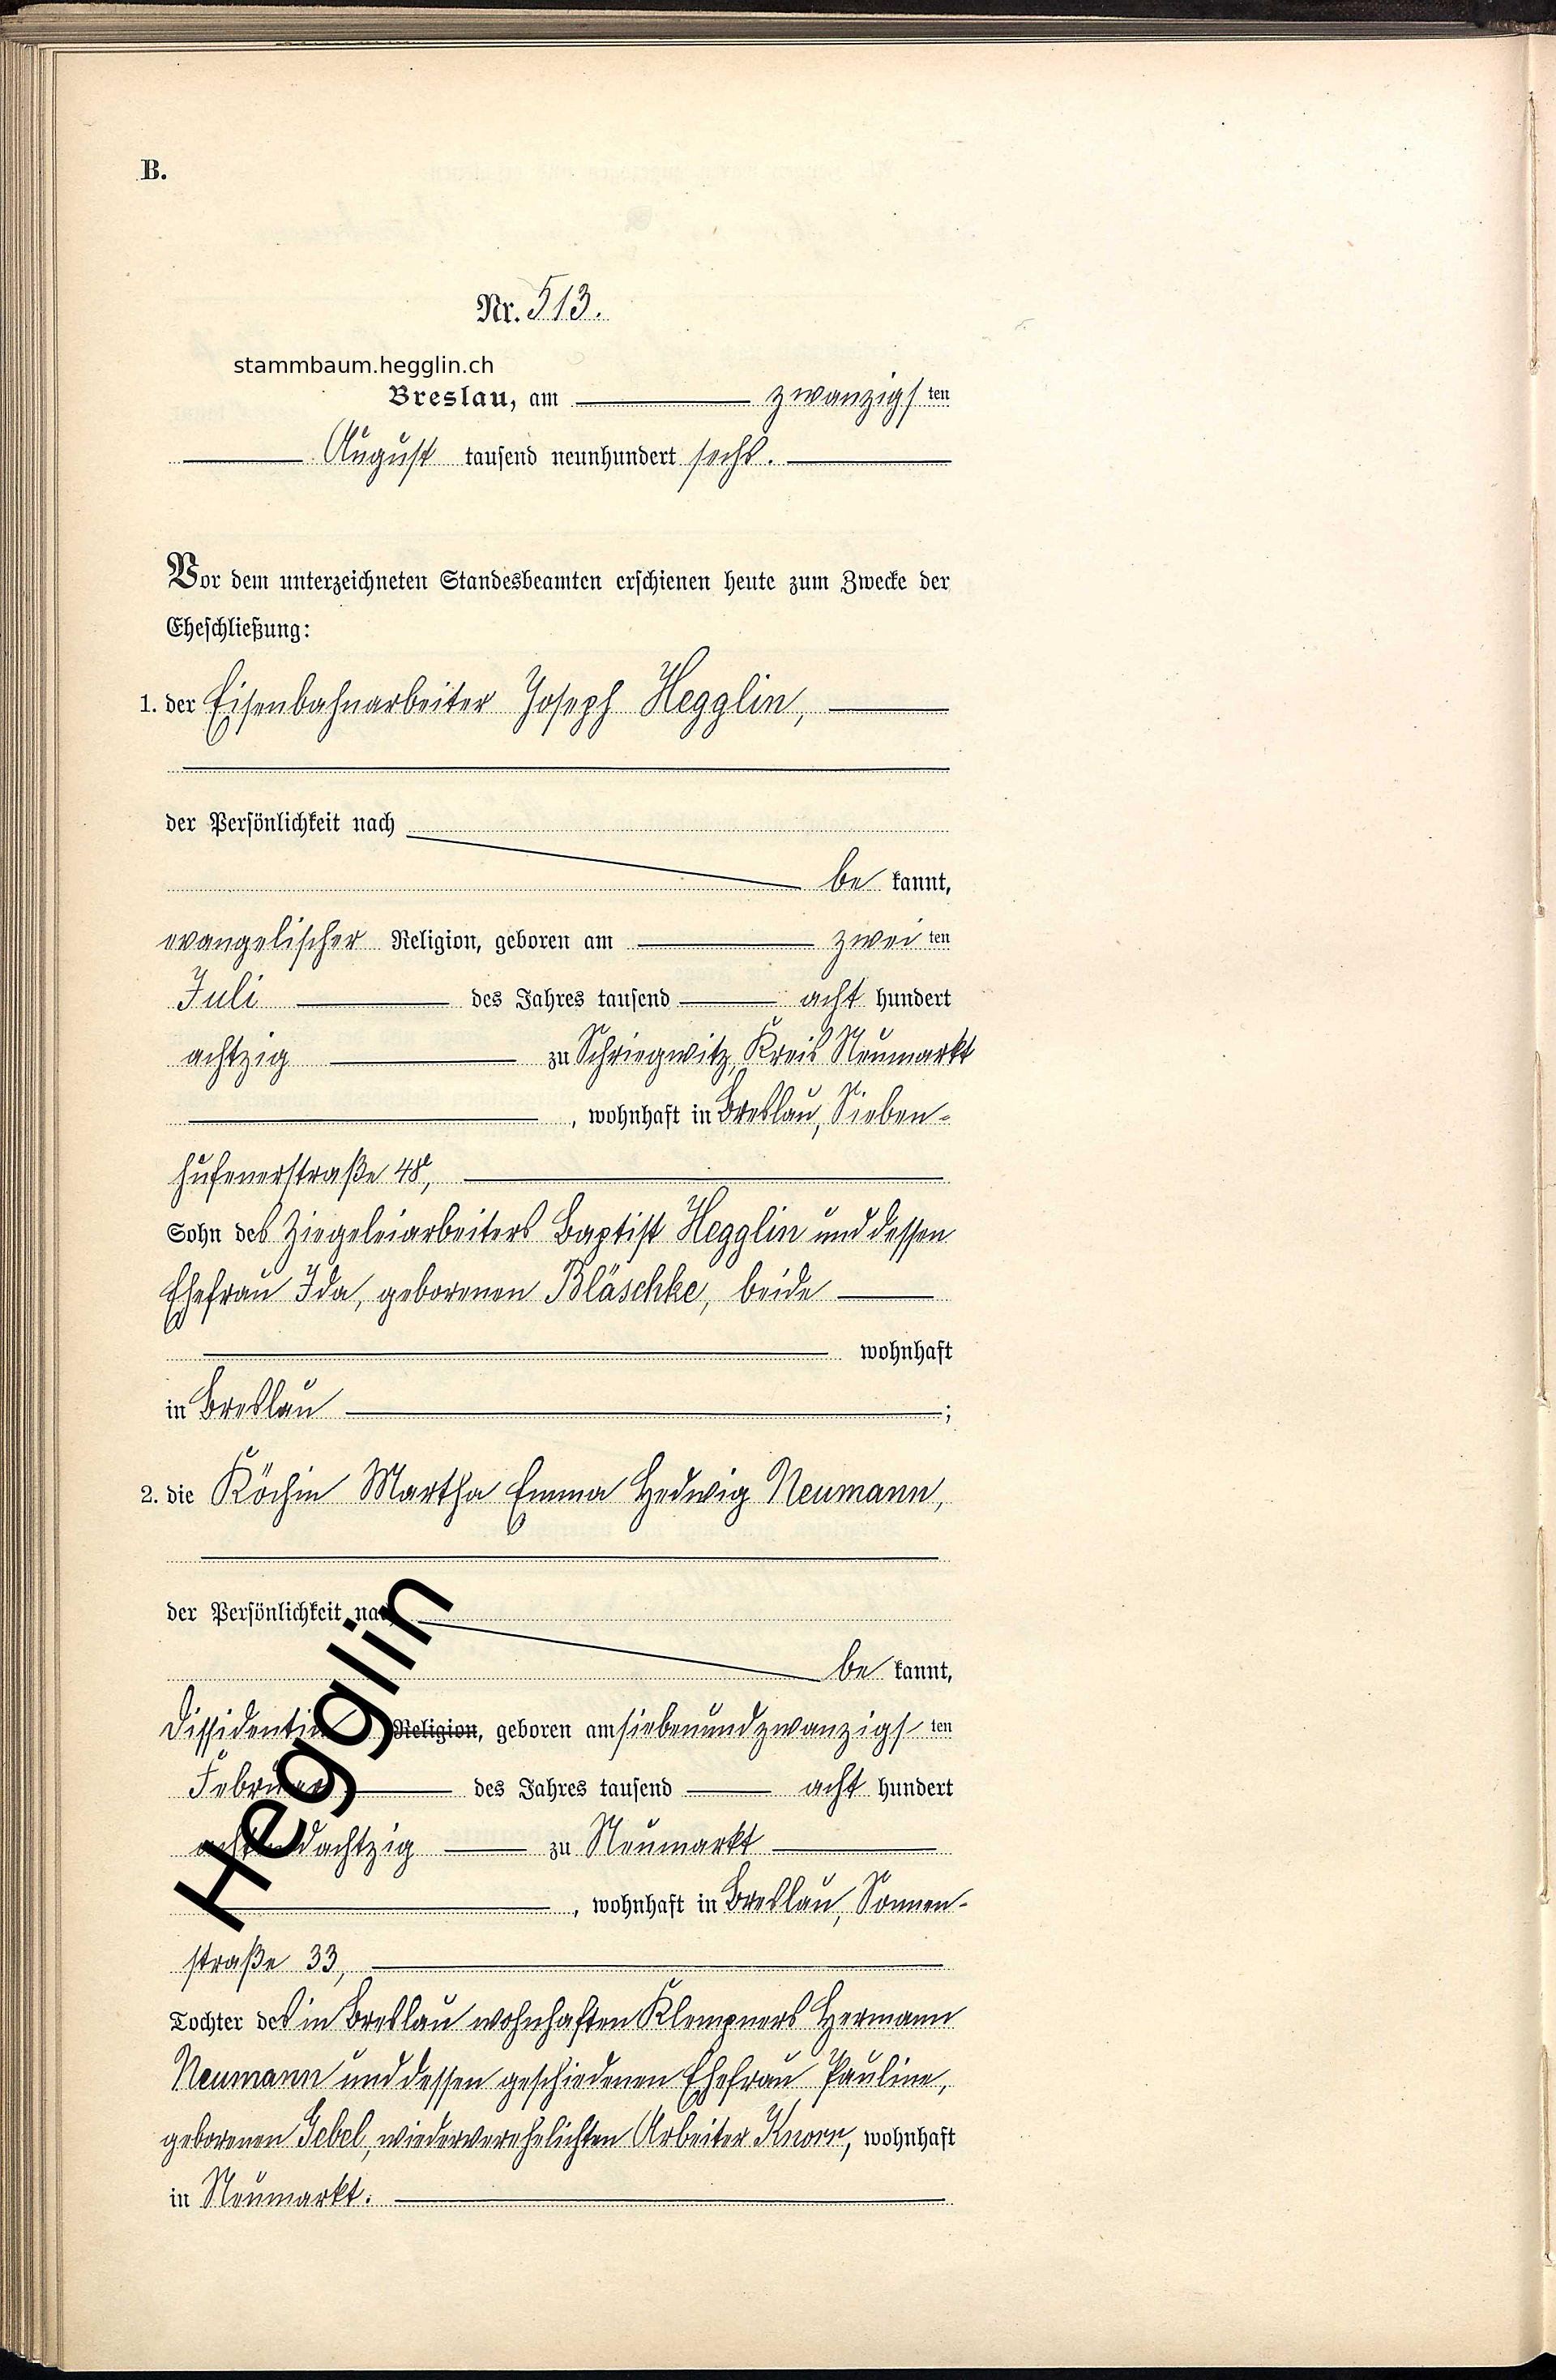 B.
Nr. 513.
stammbaum.hegglin.ch
Breslau, am zwanzigsten
August tausend neunhundert sechs.
Vor dem unterzeichneten Standesbeamten erschienen heute zum Zwecke der
Eheschließung:
1. der Eisenbahnarbeiter Joseph Hegglin,
der Persönlichkeit nach
be kannt,
evangelischer Religion, geboren am zweiten
Juli des Jahres tausend acht hundert
achtzig zu Schriegwitz, Kreis Neumarkt
, wohnhaft in Breslau, Sieben-
hufenerstraße 48,
Sohn des Ziegeleiarbeiters Baptist Hegglin und dessen
Ehefrau Ida, geborenen Bläschke, beide
wohnhaft
in Breslau ;
2. die Köchin Martha Emma Hedwig Neumann,
der Persönlichkeit nach
be kannt,
Dissidentin Religion, geboren am siebenundzwanzigsten
Februar des Jahres tausend acht hundert
achtundachtzig zu Neumarkt
, wohnhaft in Breslau, Sonnen-
straße 33,
Tochter des in Breslau wohnhaften Klempners Hermann
Neumann und dessen geschiedenen Ehefrau Pauline,
geborenen Gebel, wiederverehelichten Arbeiter Knorr, wohnhaft
in Neumarkt.
Hegglin